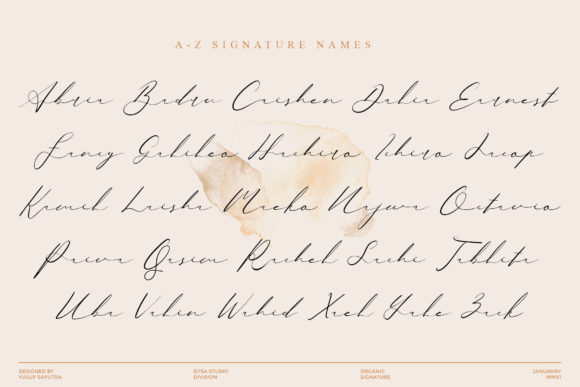 A-Z SIGNATURE NAMES
Abria Badru Crishen Daria Earnest
Fancy Galileo Hachiro Ichiro Jacop
Kamil Laisha Maeko Najwa Octavio
Paiva Qasim Rachel Sachi Tabbita
Uba Valin Wahid Xach Yake Zack
DESIGNED BY YUSUP SAPUTRA DYSA STUDIO DIVISION ORGANIC SIGNATURE JANUANRY MMX1